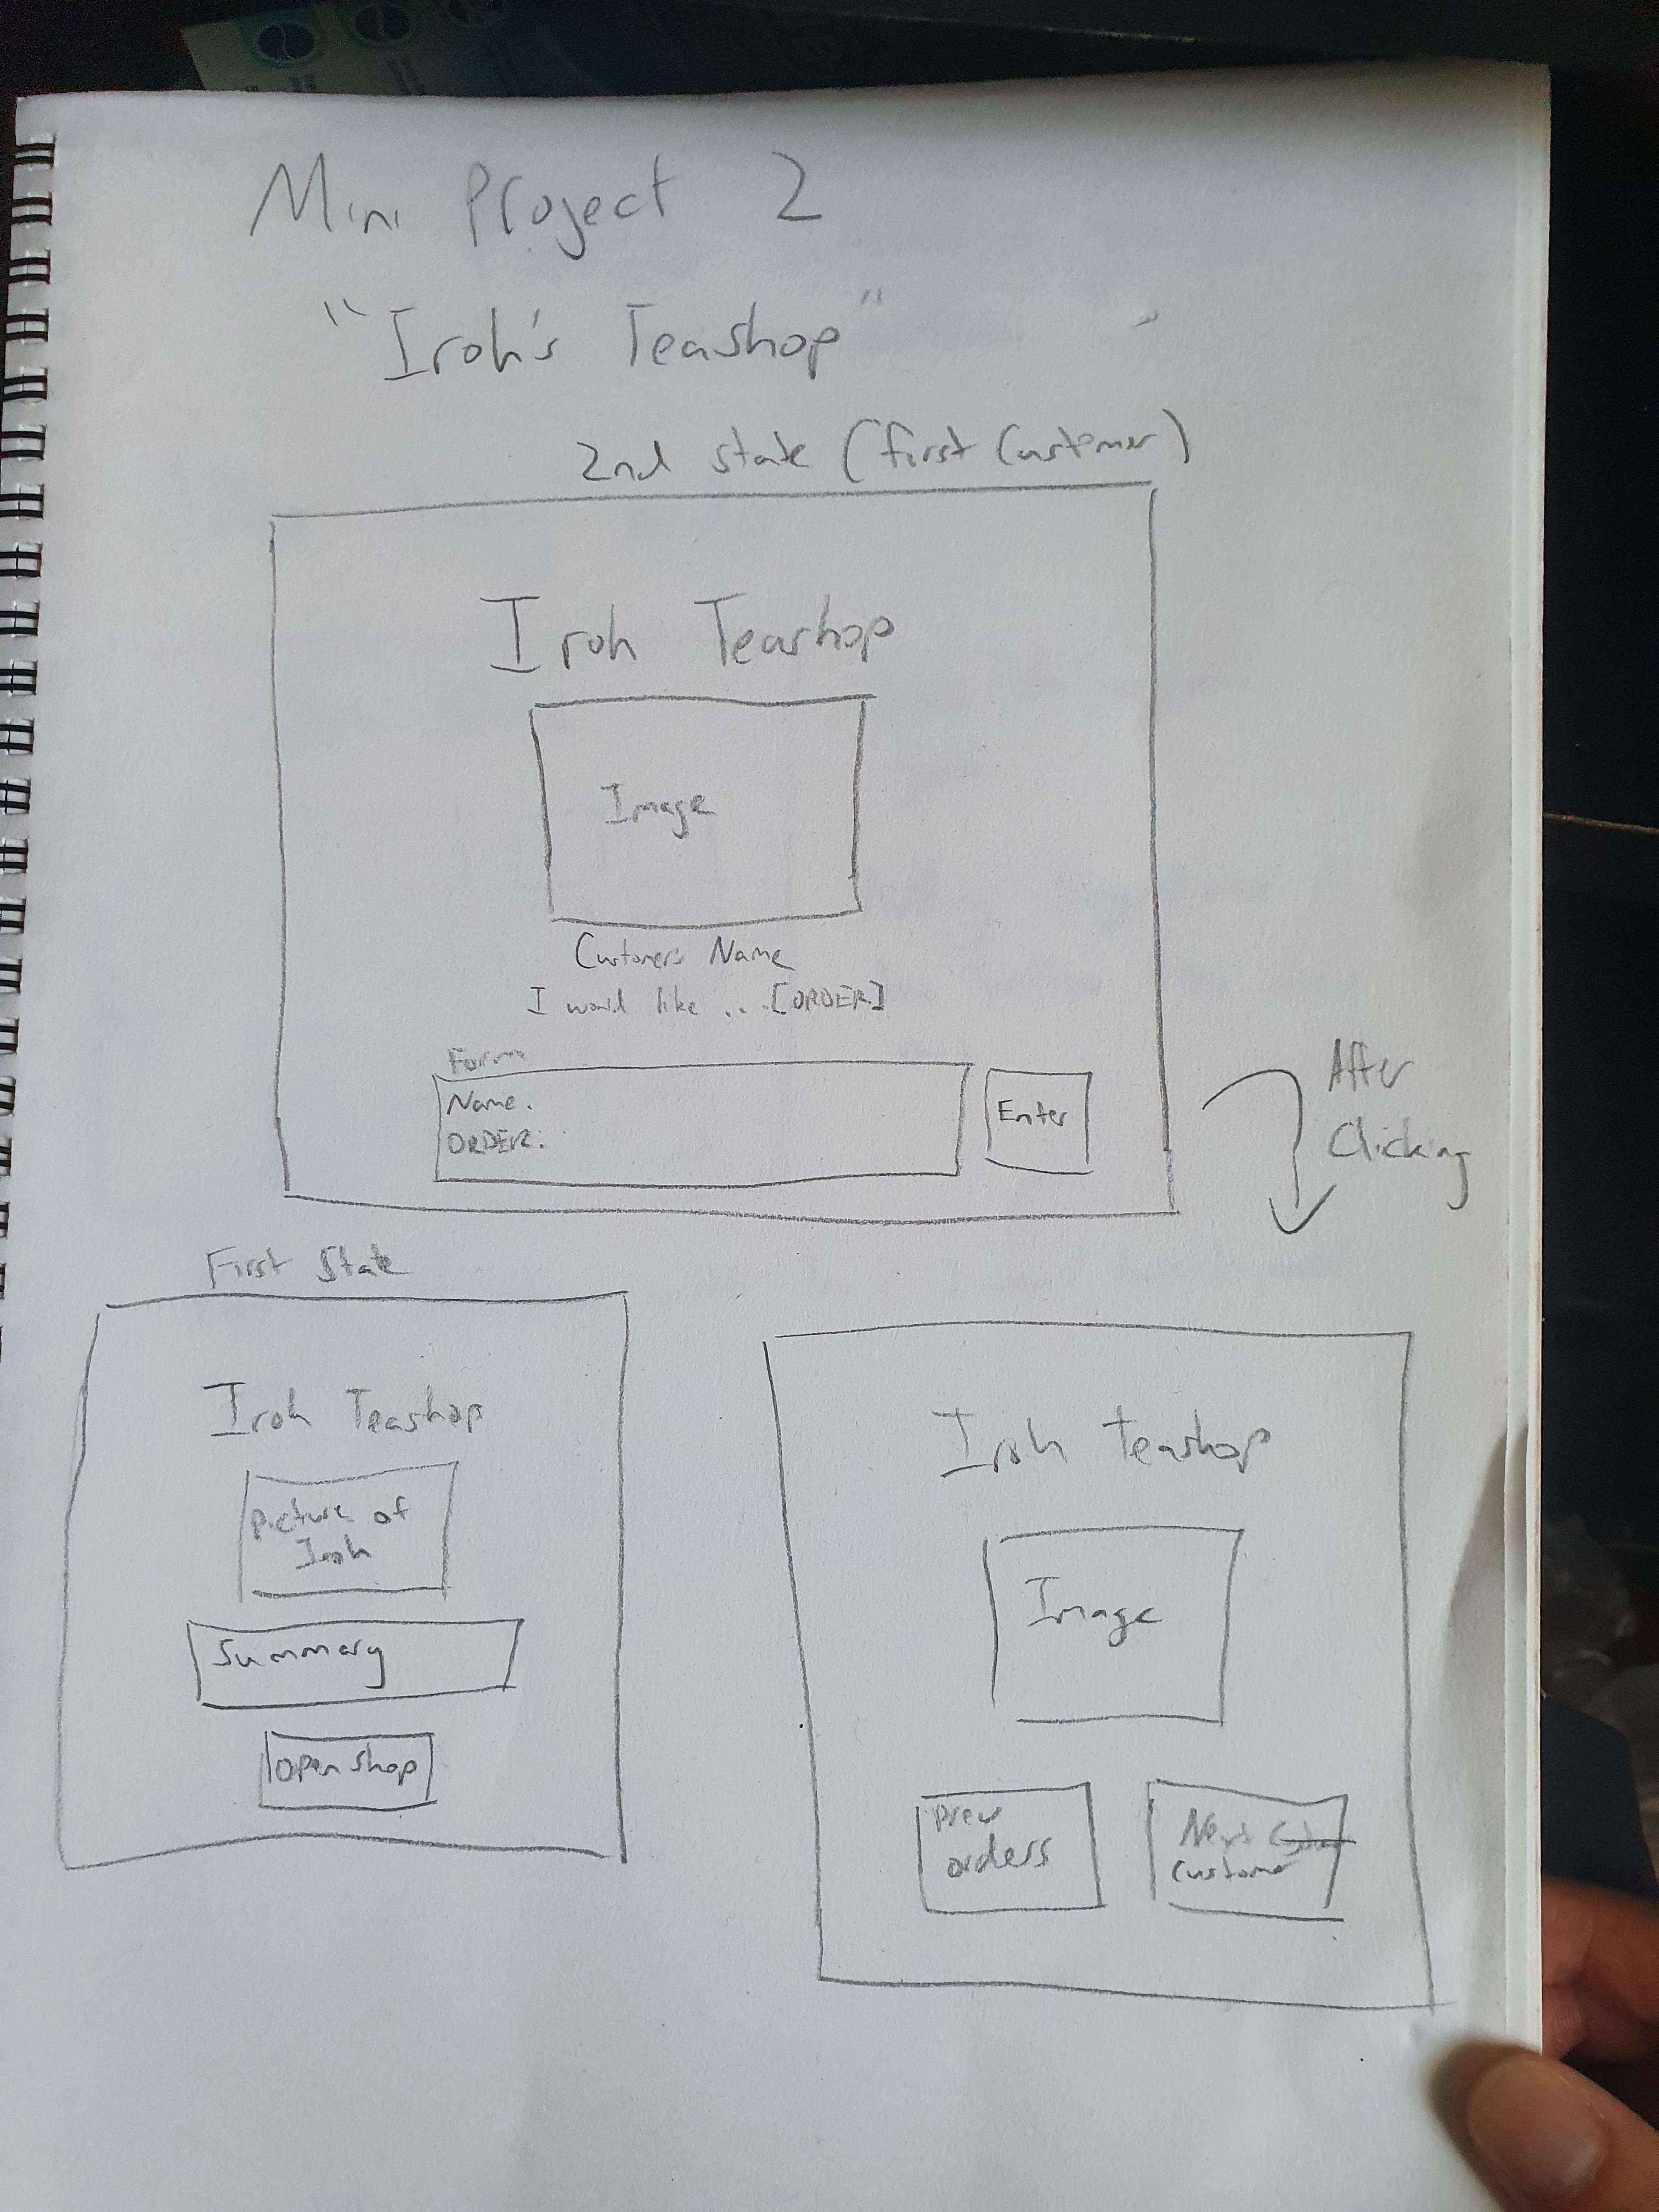 Mini Project 2
"Iroh's Teashop"
2nd state (first Customer)
Iroh Teashop
Image
Customers Name
I would like ... [ORDER]
Form
Name.
ORDER:
Enter
After
Clicking
First State
Iroh Teashop
Picture of
Iroh
Summary
open shop
Iroh teashop
Image
Prev
orders
Next
Customer